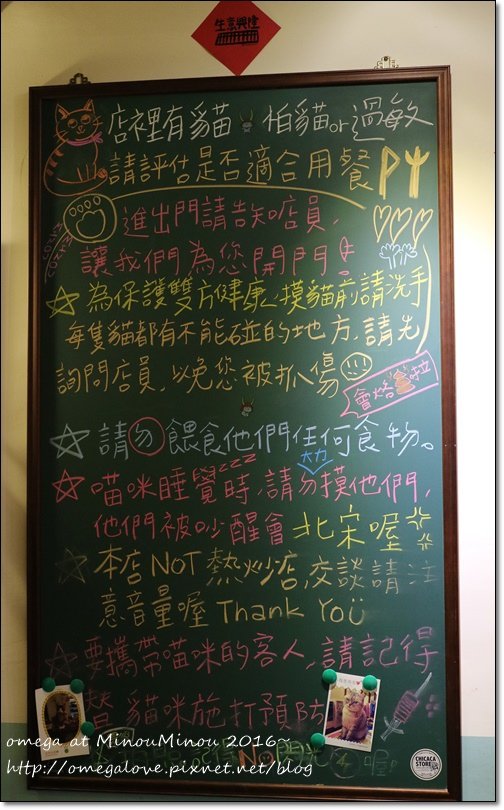 生意興隆
店裡有貓 怕貓or過敏
請評估是否適合用餐
進出門請告知店員,
讓我們為您開門!
為保護雙方健康,摸貓前請洗手
每隻貓都有不能碰的地方,請先
詢問店員,以免您被抓傷
會烙 啦
請勿餵食他們任何食物。
大力
喵咪睡覺時,請勿摸他們,
zzz
他們被吵醒會 北宋喔
本店NOT熱炒店,交談請注
意音量喔 Thank You
要攜帶喵咪的客人,請記得
貓咪施打預防
NO
喔
CHICACA STORE
omega at MinouMinou 2016~
http://omegalove.pixnet.net/blog